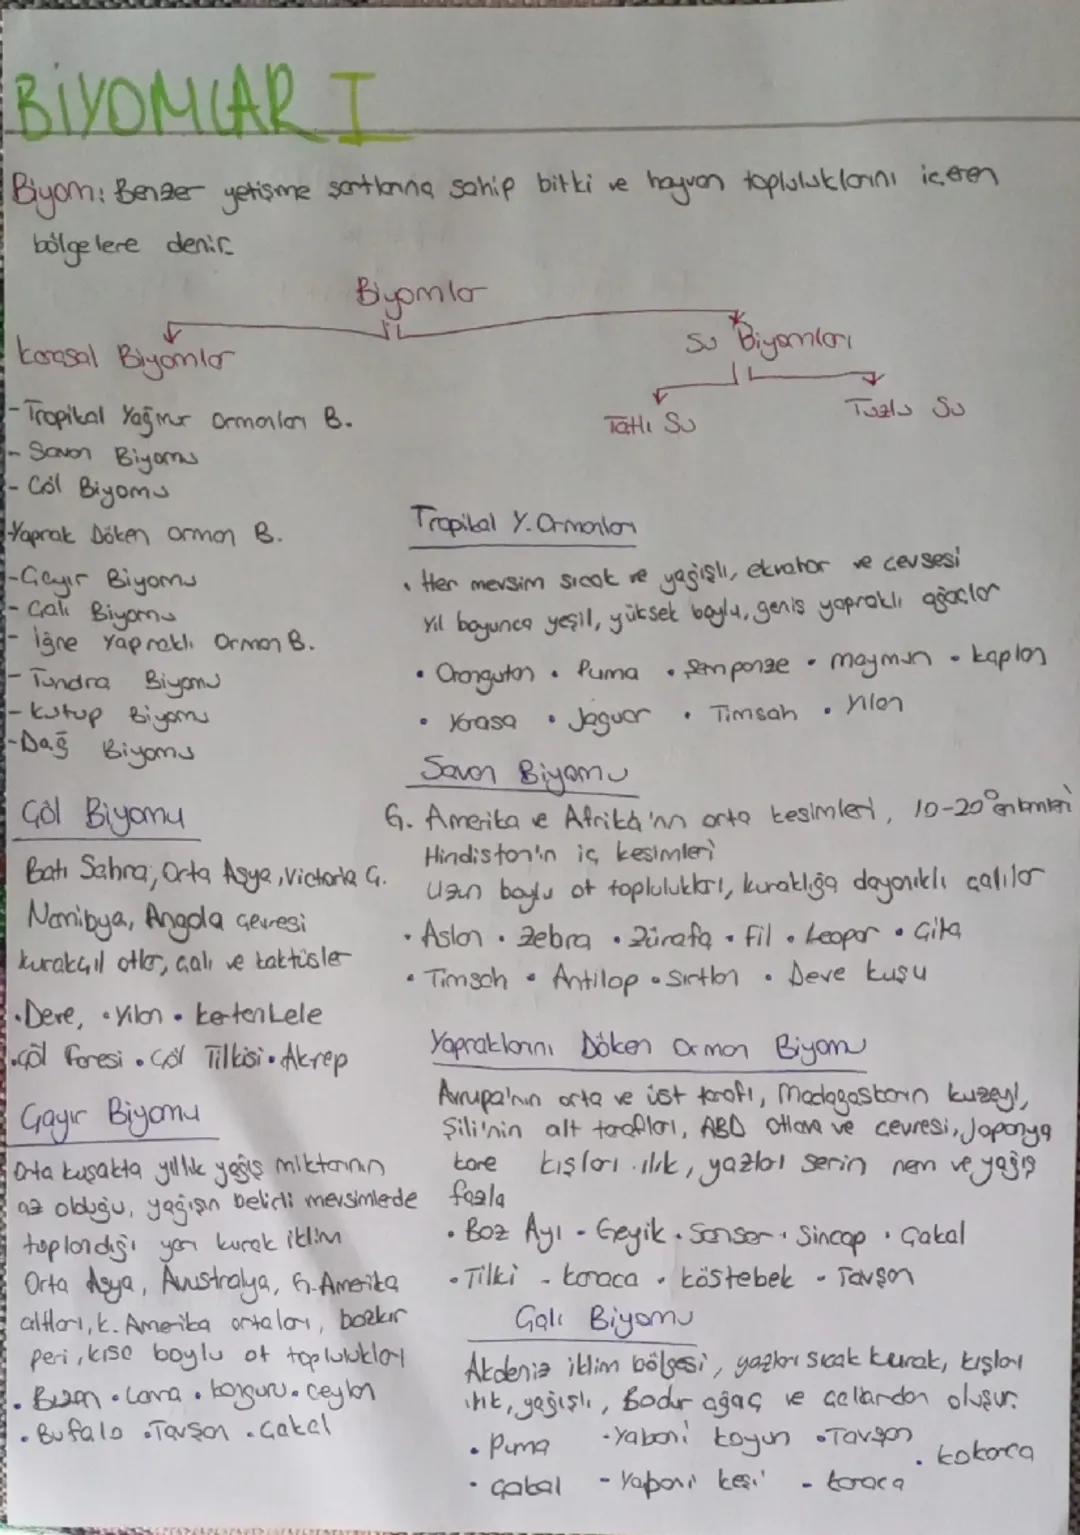 BİYOMLAR I
Biyom: Benzer yetişme şartlarına sahip bitki ve hayvan topluluklarını içeren
bölgelere denir.
Biyomlar
Karasal Biyomlar
Su Biyomları
Tatlı Su
Tuzlu Su
- Tropikal Yağmur Ormanları B.
- Savan Biyomu
- Çöl Biyomu
- Yaprak Döken orman B.
- Çayır Biyomu
- Çalı Biyomu
- İğne Yapraklı Orman B.
- Tundra Biyomu
- Kutup Biyomu
- Dağ Biyomu
Tropikal Y. Ormanları
• Her mevsim sıcak ve yağışlı, ekvator ve çevsesi
Yıl boyunca yeşil, yüksek boylu, geniş yapraklı ağaçlar
• Orangutan • Puma • Şemponze • Maymun • Kaplan
• Yarasa • Jaguar • Timsah • Yılan
Savan Biyomu
G. Amerika ve Afrika'nın orta kesimleri, 10-20° enlemleri
Hindistan'ın iç kesimleri
Uzun boylu ot toplulukları, kuraklığa dayanıklı çalılar
• Aslan • Zebra • Zürafa • Fil • Leopar • Çita
• Timsah • Antilop • Sırtlan • Deve kuşu
Çöl Biyomu
Batı Sahra, Orta Asya, Victoria G.
Namibya, Angola çevresi
kurakçıl otlar, çalı ve kaktüsler
• Deve, • Yılan • Kertenkele
• Çöl Faresi • Çöl Tilkisi • Akrep
Çayır Biyomu
Orta kuşakta yıllık yağış miktarının
az olduğu, yağışın belirli mevsimlerde
toplandığı yarı kurak iklim
Orta Asya, Avustralya, G. Amerika
altları, K. Amerika ortaları, bozkır
peri, kısa boylu ot toplulukları
• Bizon • Lama • Kanguru • Ceylan
• Bufalo • Tavşan • Çakal
Yapraklarını Döken Orman Biyomu
Avrupa'nın orta ve üst tarafı, Madagaskarın kuzeyi,
Şili'nin alt tarafları, ABD Ottava ve çevresi, Japonya
Kore kışları ılık, yazları serin nem ve yağış
fazla
• Boz Ayı - Geyik • Sansar • Sincap • Çakal
• Tilki - Karaca • Köstebek - Tavşan
Çalı Biyomu
Akdeniz iklim bölgesi, yazları sıcak kurak, kışları
ılık, yağışlı, Bodur ağaç ve çalılardan oluşur.
• Puma • Yabani koyun • Tavşan
• Kokarca
• Çakal - Yabani keçi - Karaca